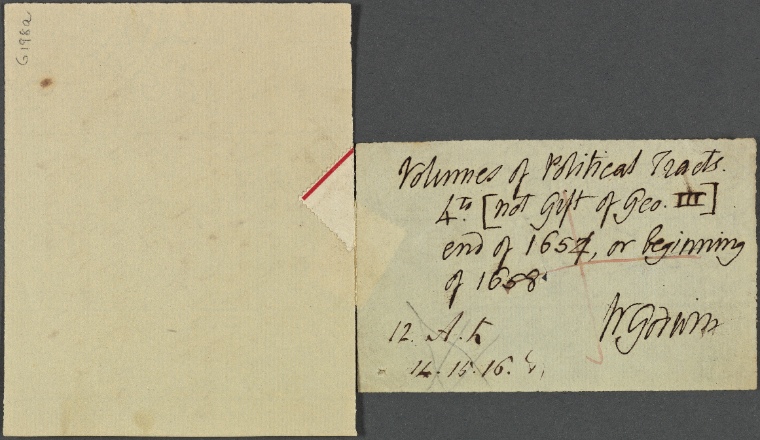 G198a
Volumes of Political Tracts.
4to [not Gift of Geo. III]
end of 1654, or beginning
of 1658
W Godwin
12. A. h
14. 15. 16.